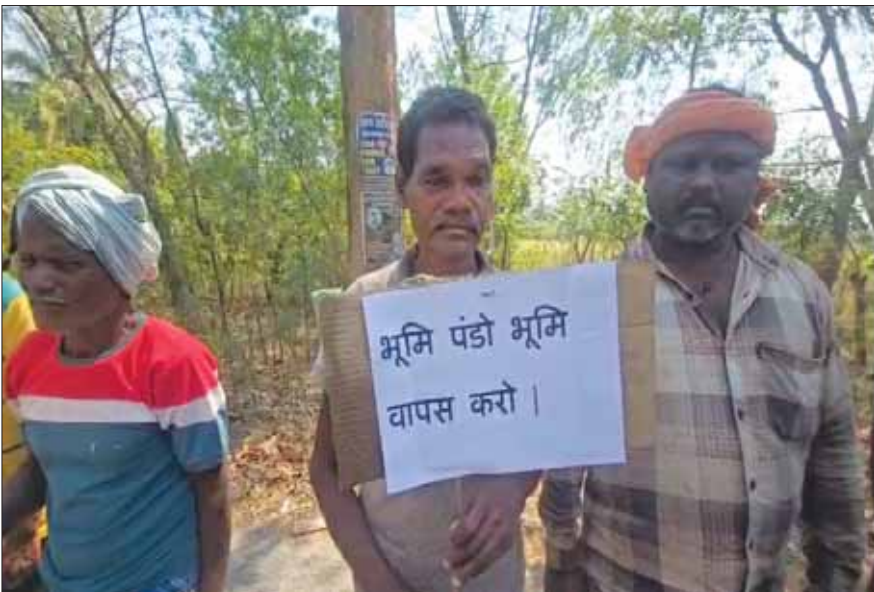 भूमि पंडो भूमि
वापस करो |